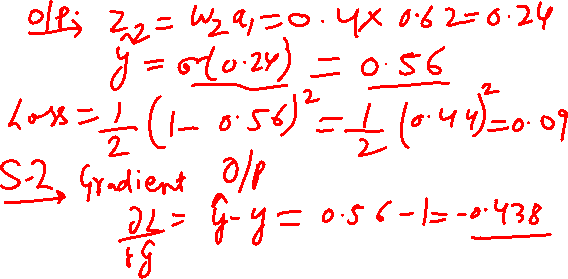 O/P: z₂ = w₂ a₁ = 0.4 x 0.62 = 0.24
ŷ = σ(0.24) = 0.56
Loss = 1/2 (1 - 0.56)² = 1/2 (0.44)² = 0.09
S-2 Gradient O/P
∂L/∂ŷ = ŷ - y = 0.56 - 1 = -0.438